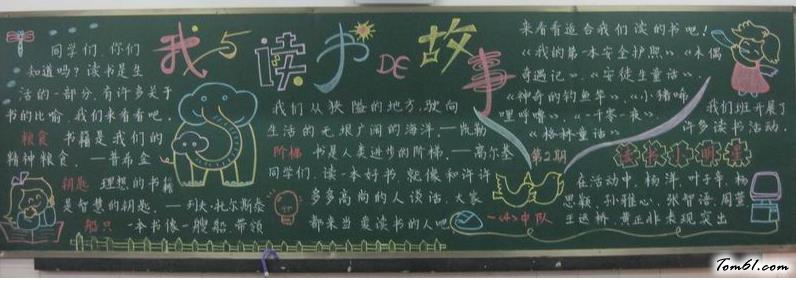 我与读书DE故事
同学们,你们
知道吗?读书是生
活的一部分,有许多关于
书的比喻,我们来看看吧。
粮食 书籍是我们的
精神粮食。——普希金
钥匙 理想的书籍
是智慧的钥匙。——列夫·托尔斯泰
船只 一本书像一艘船,带领
我们从狭隘的地方,驶向
生活的无垠广阔的海洋。——凯勒
阶梯 书是人类进步的阶梯。——高尔基
同学们,读一本好书,就像和许许
多多高尚的人谈话,大家
都来当爱读书的人吧
第2期
一〈4〉中队
来看看适合我们读的书吧!
《我的第一本安全护照》、《木偶
奇遇记》、《安徒生童话》、
《神奇的钓鱼竿》、《小猪唏
哩呼噜》、《一千零一夜》、
《格林童话》
我们班开展了
许多读书活动。
读书小明星
在活动中,杨洋、叶子年、杨
思颖、孙雅心、张智语、周萱
王运桥、黄正非表现突出
Tom61.com